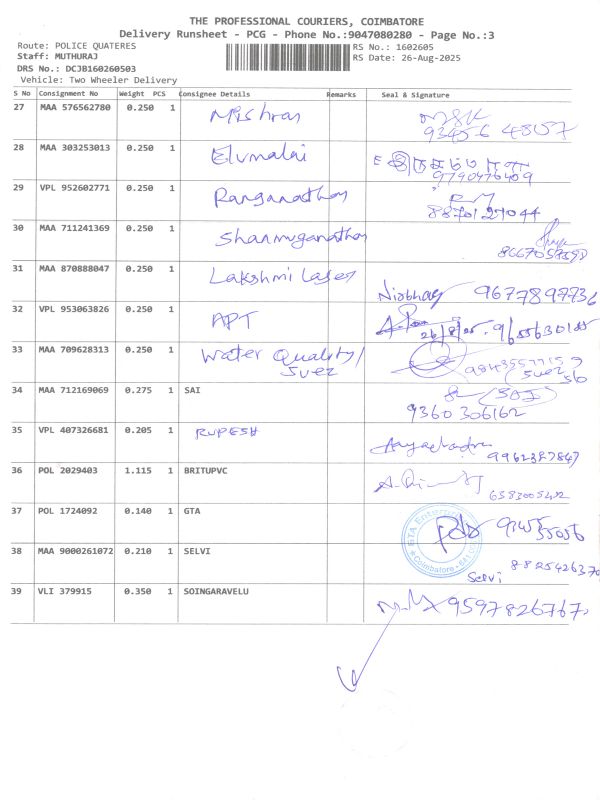 THE PROFESSIONAL COURIERS, COIMBATORE
Delivery Runsheet - PCG - Phone No.:9047080280 - Page No.:3
Route: POLICE QUATERES
RS No.: 1602605
Staff: MUTHURAJ
RS Date: 26-Aug-2025
DRS No.: DCJB160260503
Vehicle: Two Wheeler Delivery
S No Consignment No Weight PCS Consignee Details Remarks Seal & Signature
27 MAA 576562780 0.250 1 Mishran
28 MAA 303253013 0.250 1 Elumalai
9790476409
29 VPL 952602771 0.250 1 Ranganathan
8870127044
30 MAA 711241369 0.250 1 Shanmuganathan
31 MAA 870888047 0.250 1 Lakshmi Laser
9677897736
32 VPL 953063826 0.250 1 APT
26/8/25
33 MAA 709628313 0.250 1 Water Quality/
Suez
34 MAA 712169069 0.275 1 SAI
9360306162
35 VPL 407326681 0.205 1 RUPESH
9962387847
36 POL 2029403 1.115 1 BRITUPVC
37 POL 1724092 0.140 1 GTA
GTA Enterprises
Coimbatore
38 MAA 9000261072 0.210 1 SELVI
Selvi 8825426370
39 VLI 379915 0.350 1 SOINGARAVELU
9597826767